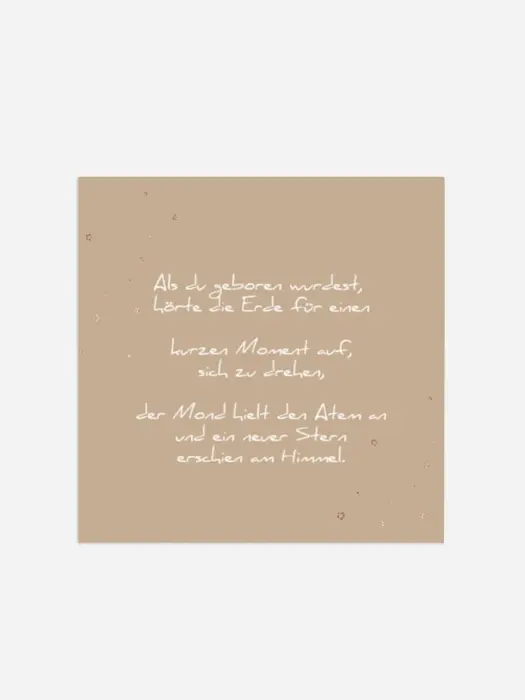 Als du geboren wurdest,
hörte die Erde für einen
kurzen Moment auf,
sich zu drehen,
der Mond hielt den Atem an
und ein neuer Stern
erschien am Himmel.